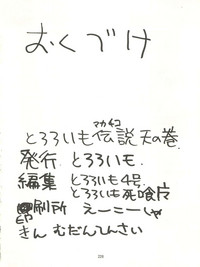 おくづけ
マカチコ
とろろいも伝説天の巻
発行 とろろいも.
編集 とろろいも4号
とろろいも死喰
印刷所 えーこーしゃ
きん むだんてんさい